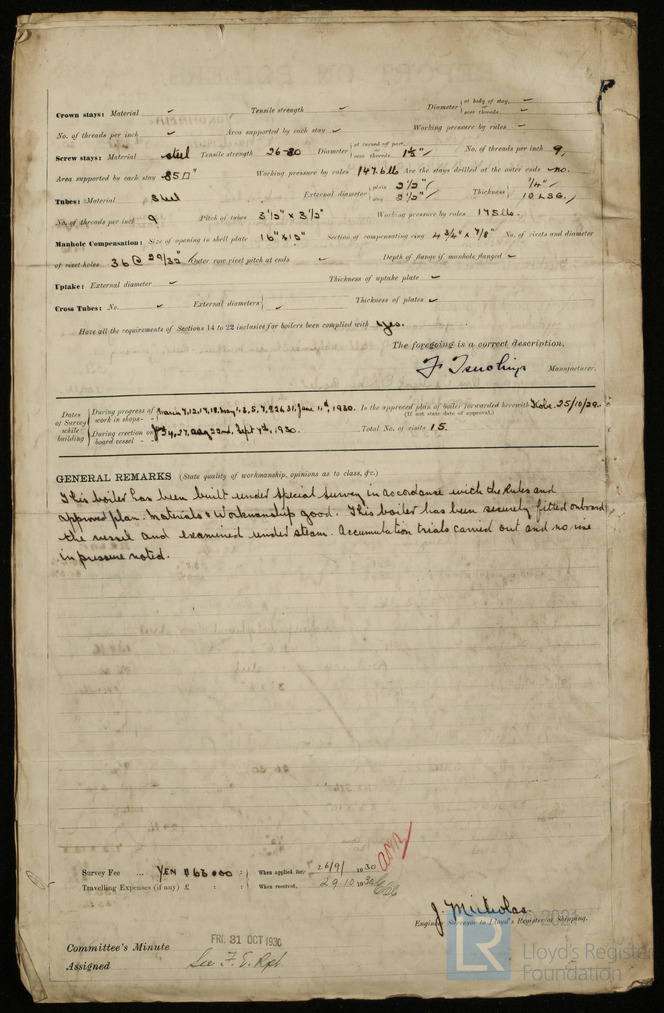 Crown stays: Material ✓ Tensile strength ✓ Diameter { at body of stay, ✓ or over threads ✓
No. of threads per inch ✓ Area supported by each stay ✓ Working pressure by rules ✓
Screw stays: Material steel Tensile strength 26-30 Diameter { at turned off part, or over threads No. of threads per inch 9,
Area supported by each stay 85□" Working pressure by rules 147.6 lb Are the stays drilled at the outer ends no.
Tubes: Material Steel External diameter { plain stay Thickness { 1/4" 10 LSG.
No. of threads per inch 9 Pitch of tubes 3½" x 3½" Working pressure by rules 175 lb.
Manhole Compensation: Size of opening in shell plate 16"x12" Section of compensating ring 4¾" x 7/8" No. of rivets and diameter
of rivet holes 36 @ 29/32" Outer row rivet pitch at ends ✓ Depth of flange if manhole flanged ✓
Uptake: External diameter ✓ Thickness of uptake plate ✓
Cross Tubes: No. ✓ External diameters { ✓ Thickness of plates ✓
Have all the requirements of Sections 14 to 22 inclusive for boilers been complied with Yes.
The foregoing is a correct description,
Manufacturer.
Dates of Survey while building
During progress of work in shops - - March 7, 12, 17, 18, May 1, 3, 5, 7, 9, 26, 31, June 11th, 1930. Is the approved plan of boiler forwarded herewith Kobe 25/10/29.
(If not state date of approval.)
During erection on board vessel - - 24, 27, Aug 22nd, Sept 4th, 1930. Total No. of visits 15.
GENERAL REMARKS (State quality of workmanship, opinions as to class, &c.)
This boiler has been built under Special Survey in accordance with the Rules and
approved plan. Materials & Workmanship good. This boiler has been securely fitted onboard
the vessel and examined under steam. Accumulation trials carried out and no rise
in pressure noted.
Survey Fee ... YEN ¥ 65.00 : When applied for, 26/9/ 1930
Travelling Expenses (if any) £ : : When received, 29.10.1930
J. Nicholas.
Engineer Surveyor to Lloyd's Register of Shipping.
Committee's Minute FRI. 31 OCT 1930
Assigned See F. E. Rpt
© 2021
LR
Lloyd's Register
Foundation